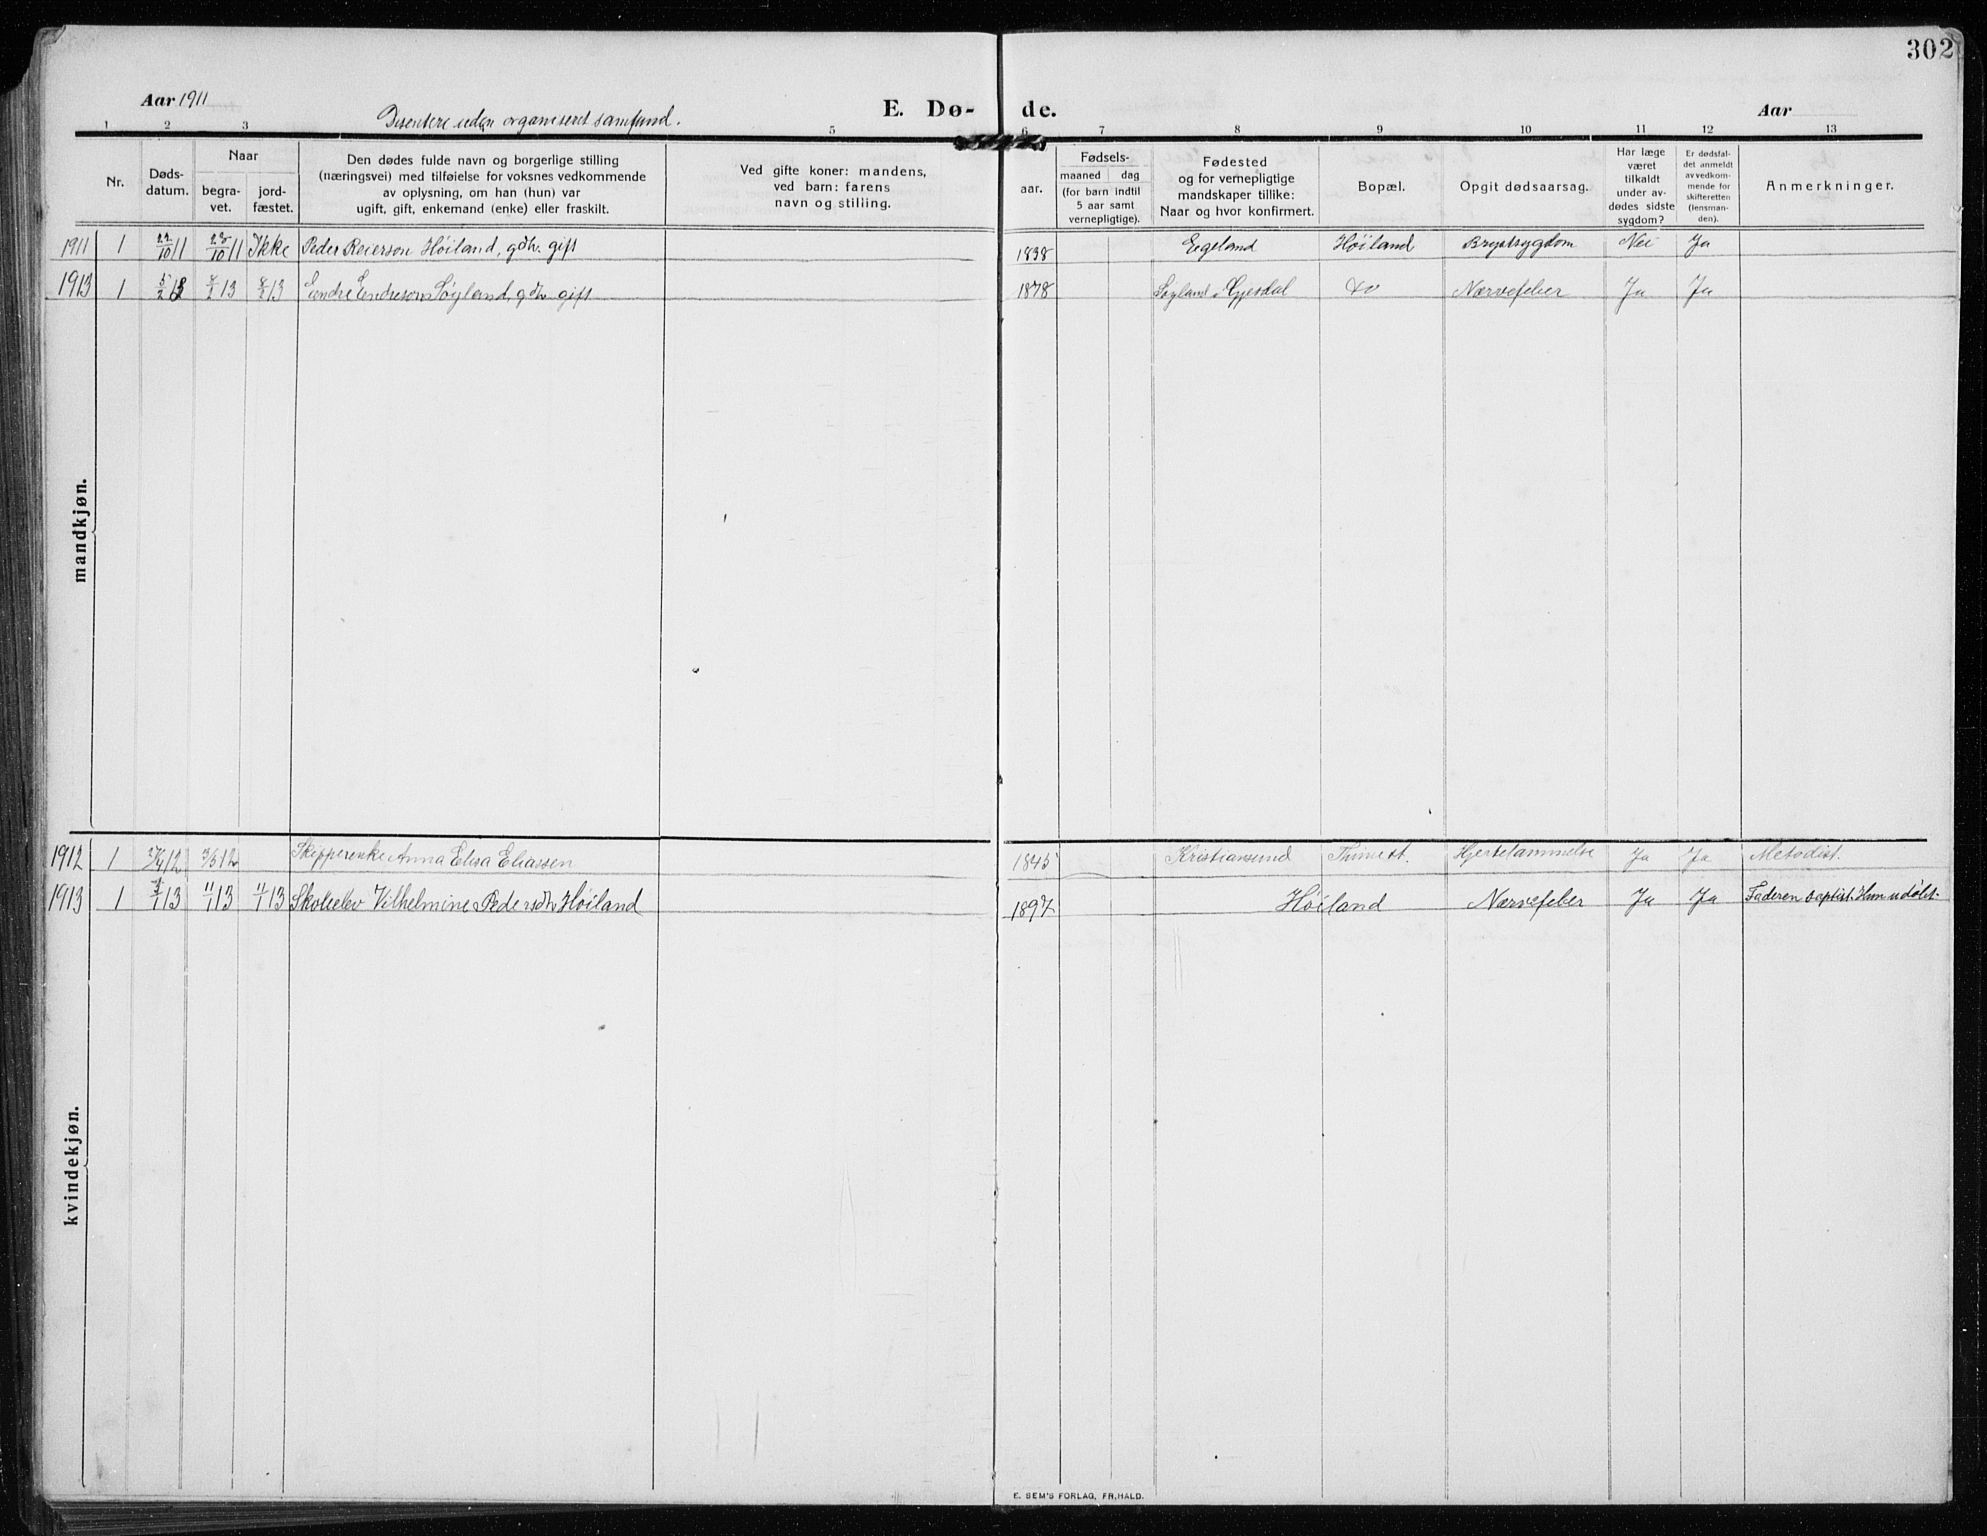 302
Aar 1911
Disentere uden organiseret samfund.
E. Dø- de.
Aar
1 2 3 5 6 7 8 9 10 11 12 13
Nr.
Døds-
datum.
Naar
begra-
vet.
jord-
fæstet.
Den dødes fulde navn og borgerlige stilling
(næringsvei) med tilføielse for voksnes vedkommende
av oplysning, om han (hun) var
ugift, gift, enkemand (enke) eller fraskilt.
Ved gifte koner: mandens,
ved barn: farens
navn og stilling.
Fødsels-
aar.
maaned dag
(for barn indtil
5 aar samt
vernepligtige).
Fødested
og for vernepligtige
mandskaper tillike:
Naar og hvor konfirmert.
Bopæl.
Opgit dødsaarsag.
Har læge
været
tilkaldt
under av-
dødes sidste
sygdom?
Er dødsfal-
det anmeldt
av vedkom-
mende for
skifteretten
(lensman-
den).
Anmerkninger.
1911 1 22/10 11 25/10 11 Ikke Peder Reierson Høiland, gdbr. gift 1838 Egeland Høiland Brystsygdom Nei Ja
1913 1 5/2 13 8/2 13 8/2 13 Endre Endreson Søyland, gdbr. gift 1878 Søyland i Gjesdal do Nervefeber Ja Ja
mandkjøn.
1912 1 27/4 12 3/5 12 Skipperenke Anna Elisa Eliassen 1845 Kristiansund Thimest. Hjertelammelse Ja Ja Metodist.
1913 1 /1 13 11/1 13 11/1 13 Skoleelev Vilhelmine Pedersdtr Høiland 1897 Høiland Nærvefeber Ja Ja Faderen baptist. Hun udøbt.
kvindekjøn.
E. SEM'S FORLAG, FR.HALD.